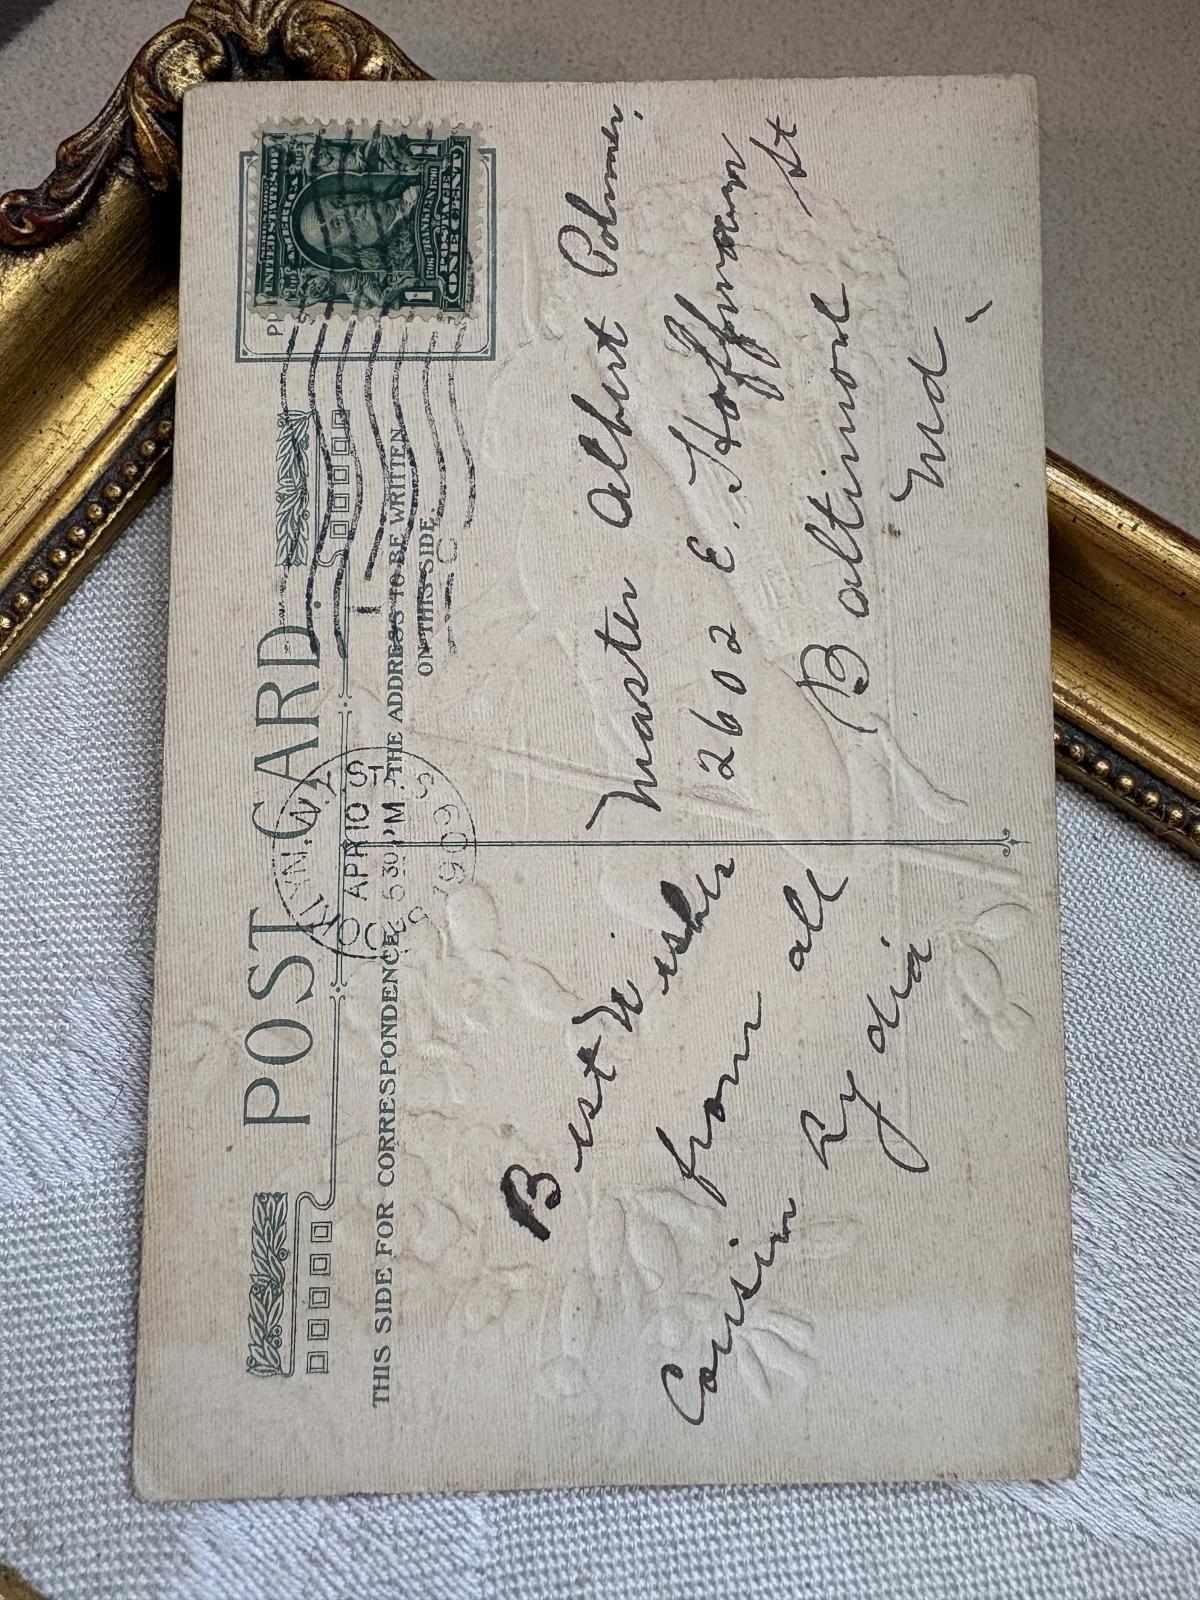 POST CARD.
THIS SIDE FOR CORRESPONDENCE.
THE ADDRESS TO BE WRITTEN
ON THIS SIDE.
SERIES 1902
UNITED STATES OF
AMERICA
1706 FRANKLIN 1790
POSTAGE
1 ONE CENT 1
N.Y.
APR 10
5 30 PM
1909
Best Wishes
from all
Cousin Lydia
Master Albert
2602 E. Hoffman St
Baltimore
Md